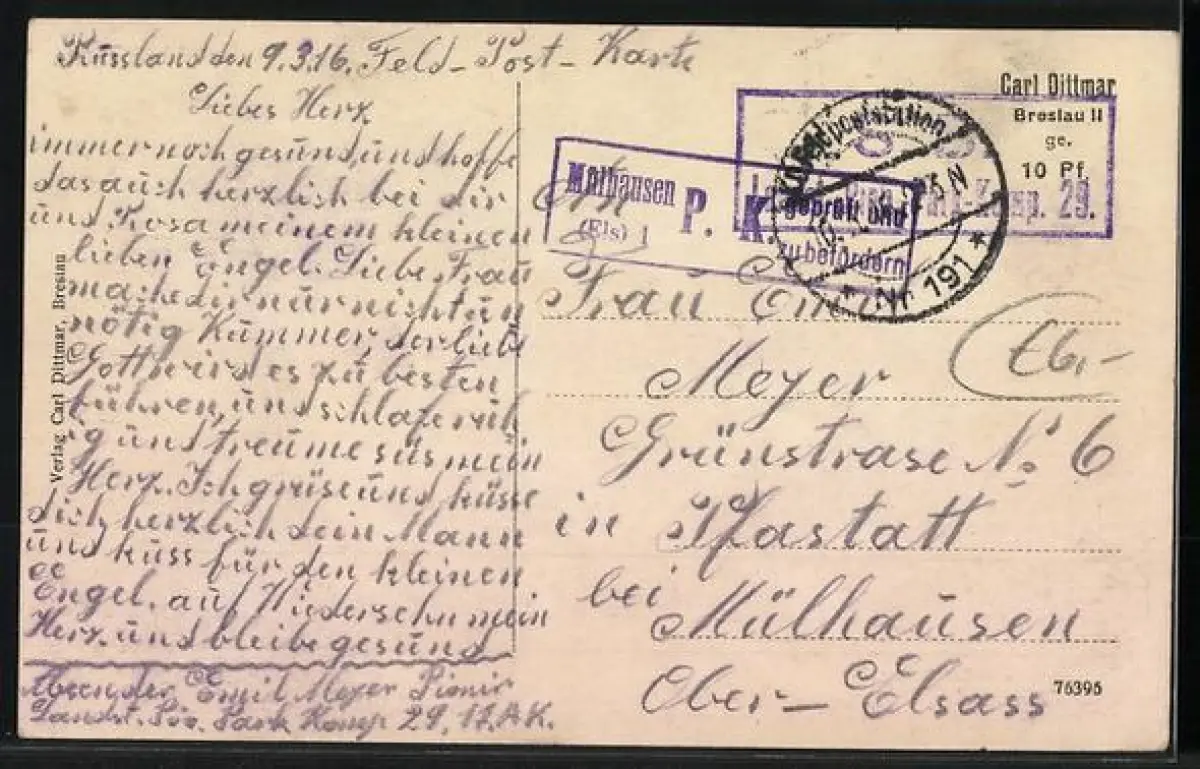 Russland den 9.3.16. Feld-Post-Karte
Liebes Herz
immer noch gesund, und hoffe
das auch herzlich bei dir
und Rosa meinem kleinen
lieben Engel. Liebe Frau
mache dir nur nicht un
nötig Kummer, der liebe
Gott wird es zu besten
führen, und schlafe ruh
ig und treume süs mein
Herz. Ich grüse und küsse
dich herzlich dein Mann
und kuss für den kleinen
Engel. auf Wiedersehn mein
Herz. und bleibe gesund
Absender Emil Meyer Pionir
Landst. Pio. Park Komp 29. 17. A.K.
Verlag Carl Dittmar, Breslau
Carl Dittmar
Breslau II
ge.
10 Pf.
Mülhausen
(Els) 1
P. K.
geprüft und
zu befördern
Park-Komp. 29.
Nr 191
An
Frau
Meyer
Grünstrase No 6
in Pfastatt
bei
Mülhausen
Ober-Elsass
76395